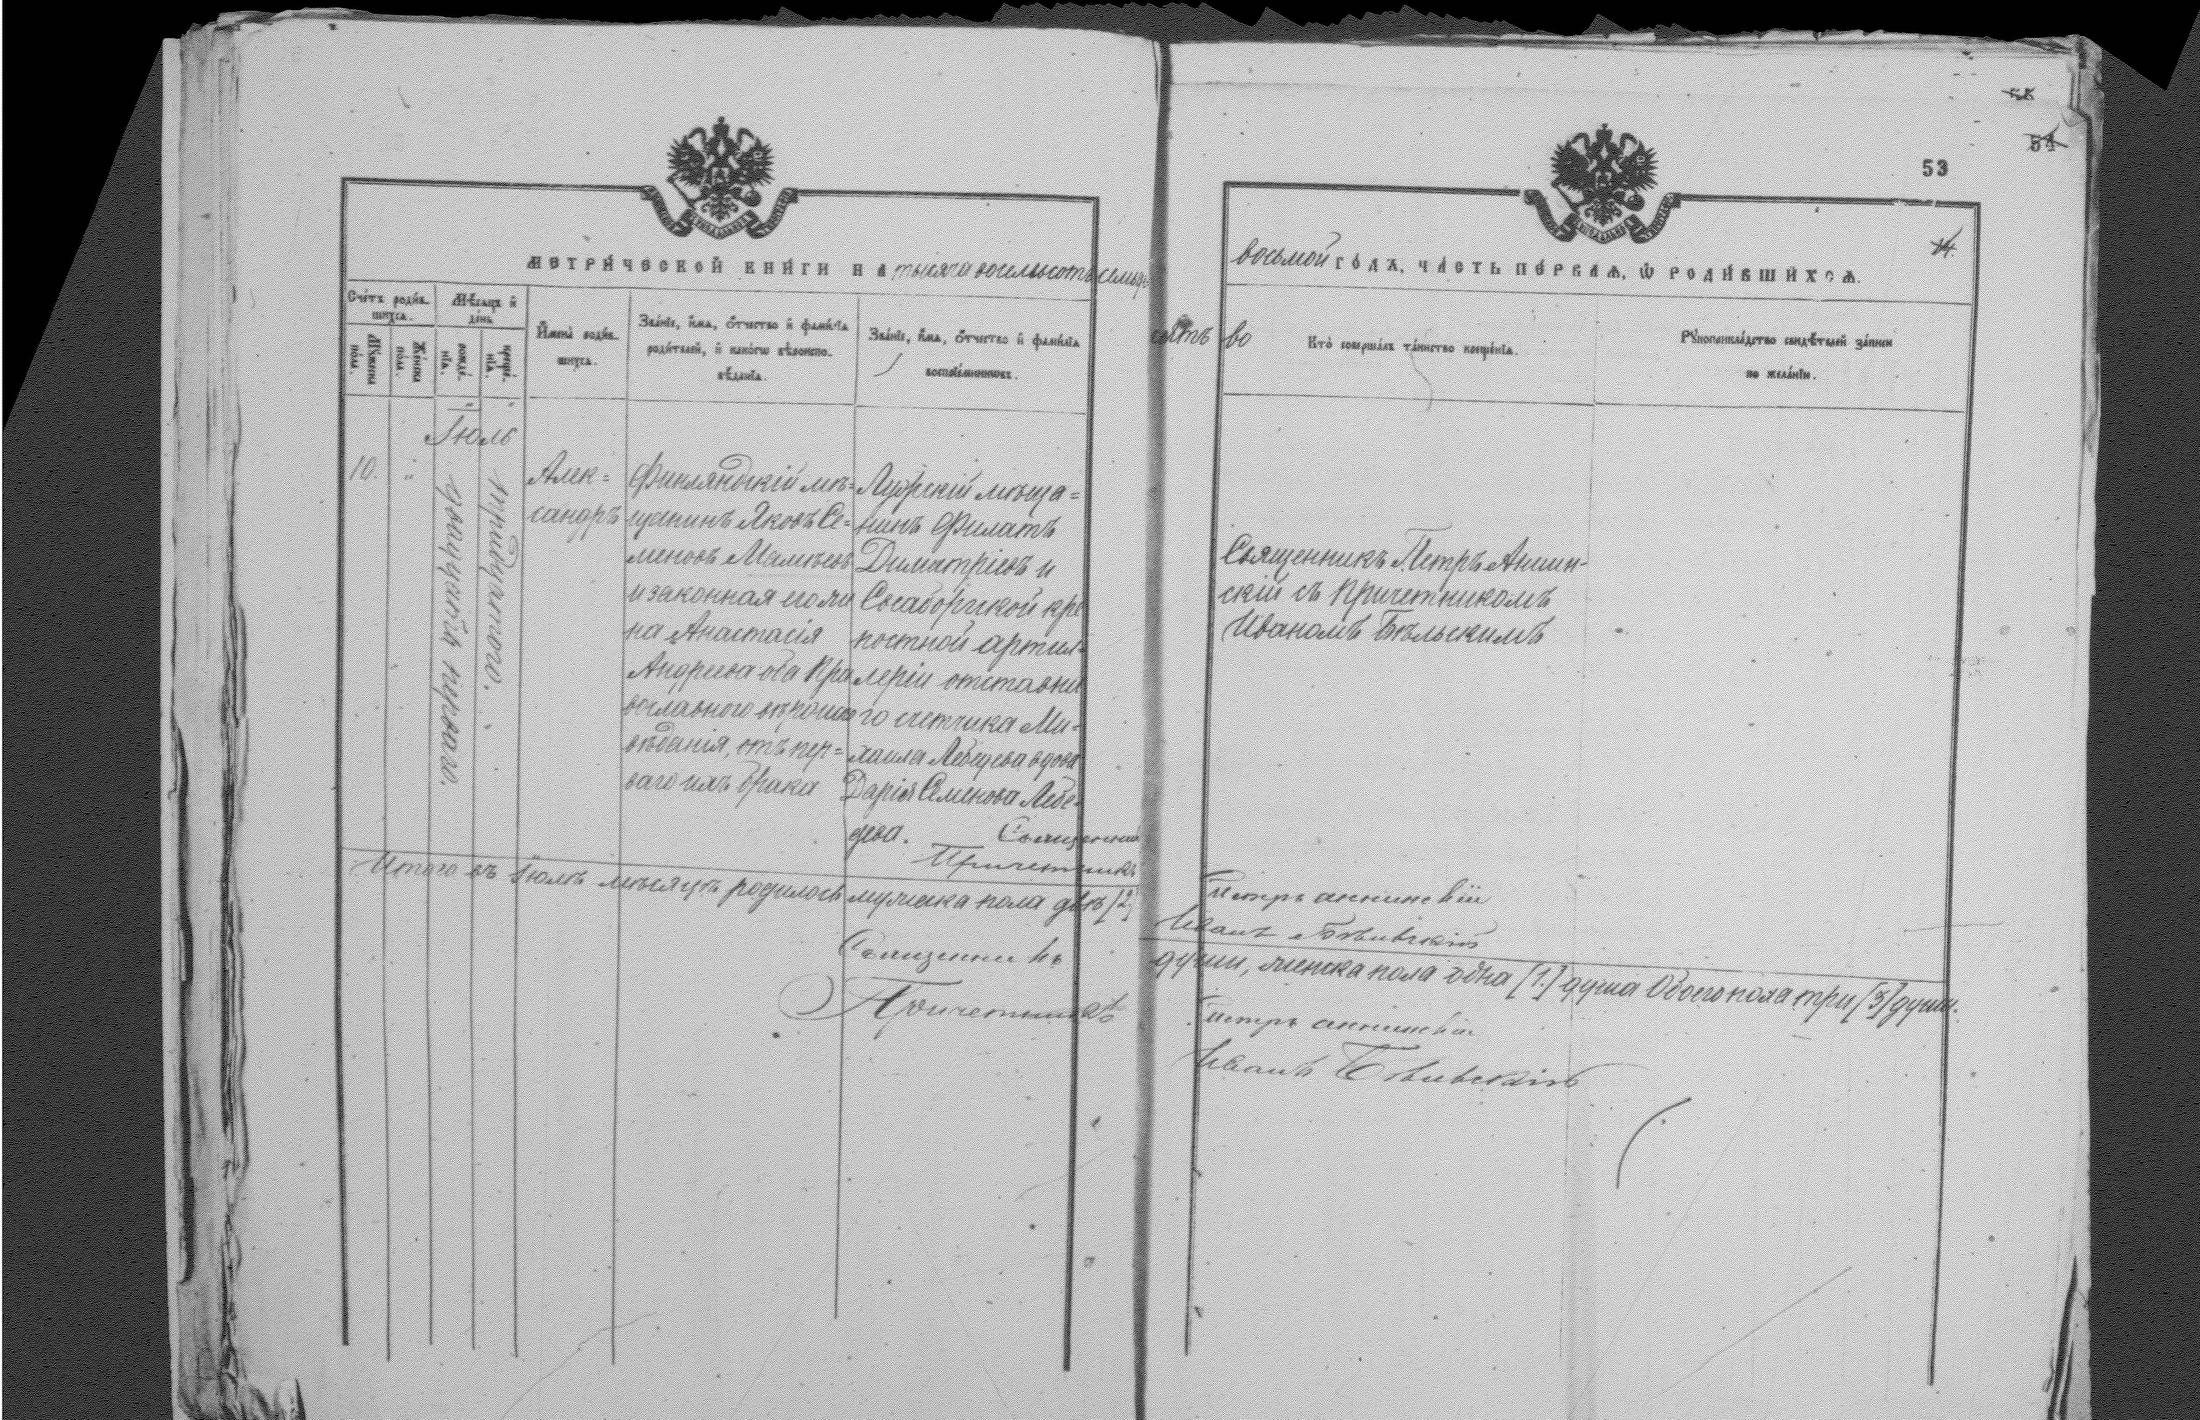 53
54
53
14.
МЕТРИ́ЧЕСКОЙ КНИ́ГИ НА тысяча восемьсотъ семьде-
сятъ во
восьмой ГО́ДЪ, ЧА́СТЬ ПЕ́РВАѦ, Ѽ РОДИ́ВШИХСѦ.
Сче́тъ роди́в-
шихсѧ.
Мꙋ́жеска по́ла.
Же́нска по́ла.
Мѣ́сѧцъ и҆
де́нь
рожде́-нїѧ.
креще́-нїѧ.
И҆мена̀ роди́в-
шихсѧ.
Зва́нїе, и҆́мѧ, ѻ҆́тчество и҆ фами́лїѧ
роди́телей, и҆ како́гѡ вѣроиспо-
вѣ́данїѧ.
Зва́нїе, и҆́мѧ, ѻ҆́тчество и҆ фами́лїѧ
воспрїе́мниковъ.
Кто̀ соверша́лъ та́инство креще́нїѧ.
Рꙋкоприкла́дство свидѣ́телей за́писи
по жела́нїю.
Іюль
10.
"
двадцать перваго.
тридцатого.
Алек=
сандръ
Финляндскій мѣ=
щанинъ Яковъ Се=
меновъ Мамѣевъ
и законная его же
на Анастасія
Андреева оба Пра
вославного вѣроиспо
вѣданія, отъ пер=
ваго ихъ брака
мѣща=
нинъ Филатъ
Димитріевъ и
Свеаборгской крѣ
постной артил=
леріи отставна
го счетчика Ми=
хаила Лебедева вдова
Дарія Семенова Лебе=
дева.
Священникъ Петръ Аннин-
скій съ Причетникомъ
Иваномъ Бѣльскимъ
Священникъ Петръ Аннинскій
Причетникъ Иванъ Бѣльскій
Итого въ Іюлѣ мѣсяцѣ родилось мужеска пола двѣ [2]
души, женска пола одна [1.] душа Обоего пола три [3] души.
Священникъ Петръ Аннинскій
Причетникъ Иванъ Бѣльскій